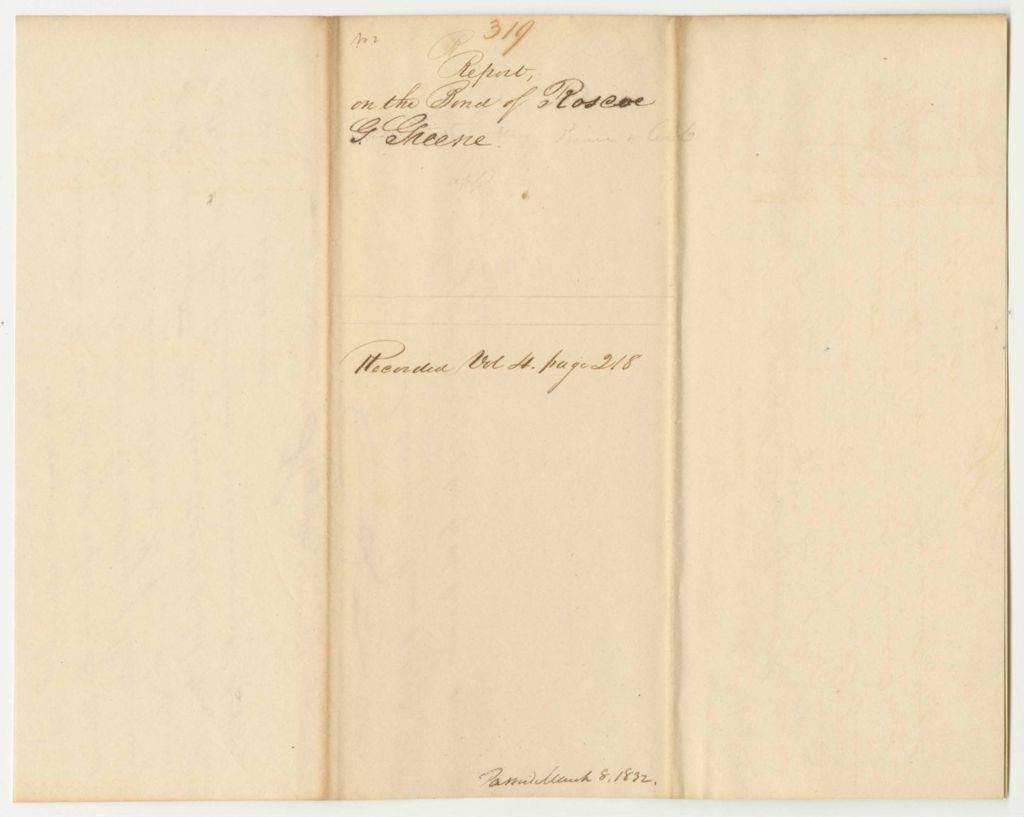 No 2
319
Report,
on the Bond of Roscoe
G. Greene.
Recorded Vol 4. page 218
Passed March 8, 1832.